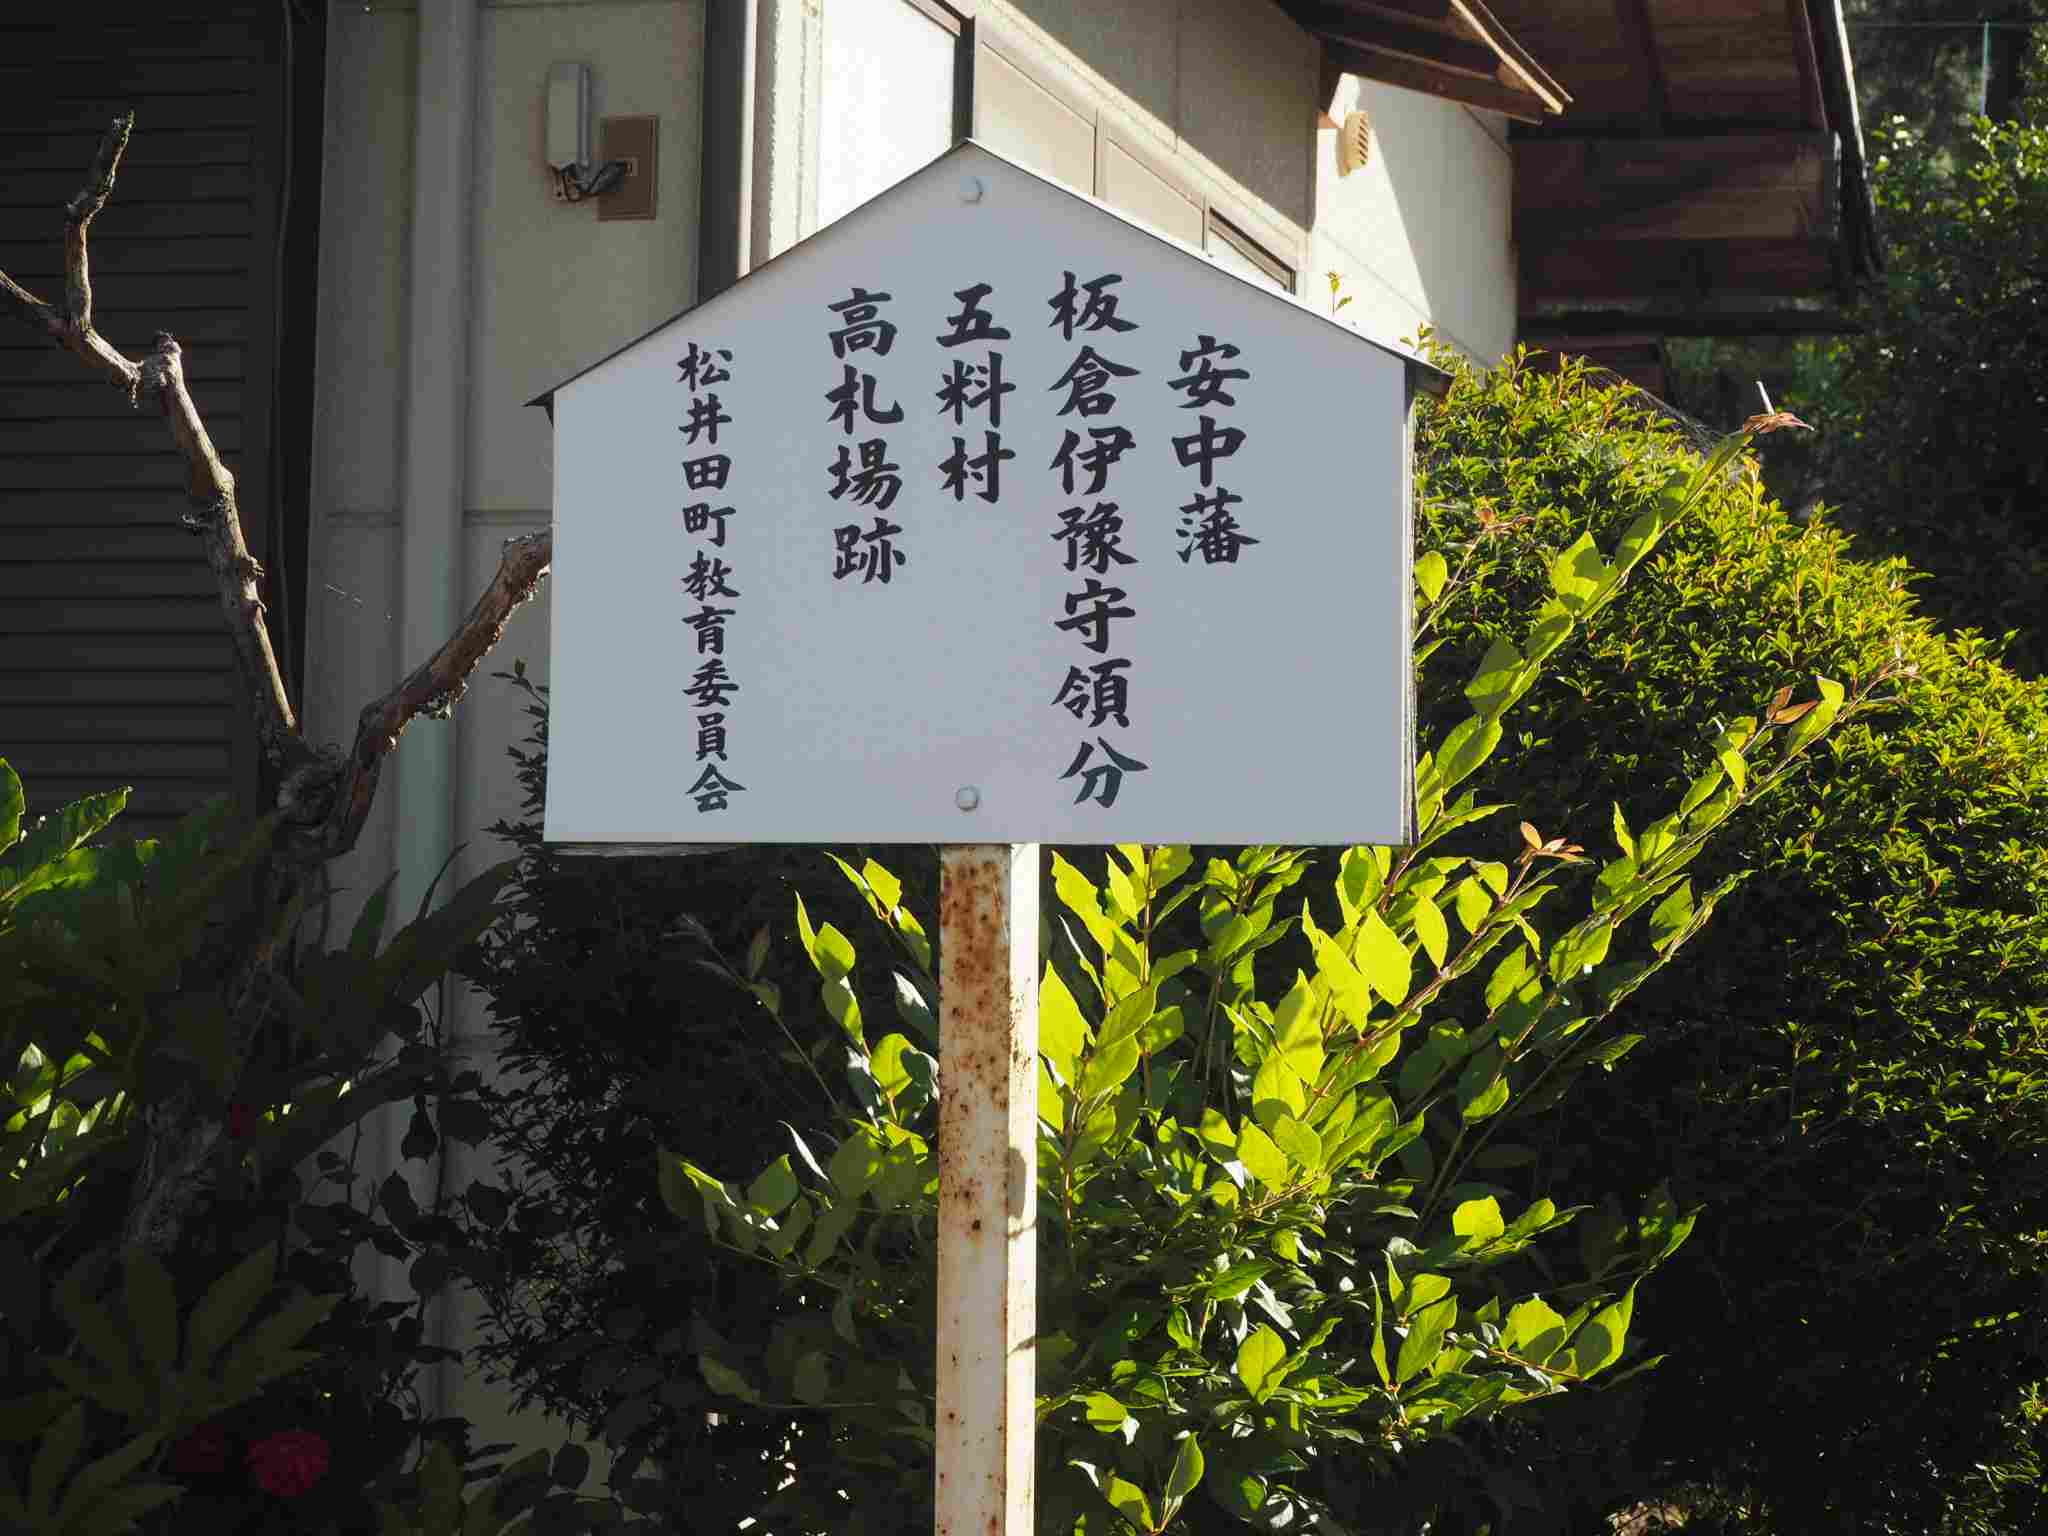 安中藩
板倉伊豫守領分
五料村
高札場跡
松井田町教育委員会